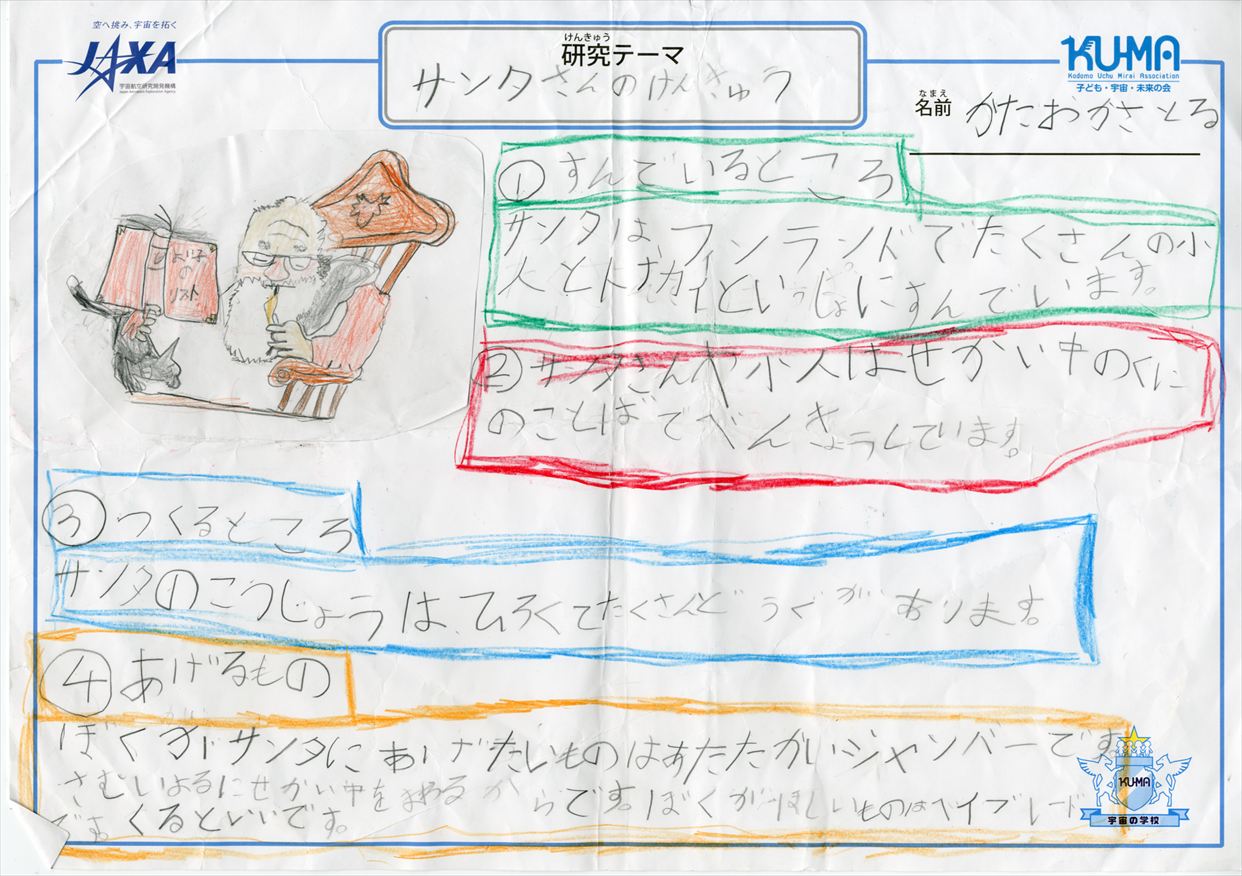 空へ挑み、宇宙を拓く
JAXA
宇宙航空研究開発機構
Japan Aerospace Exploration Agency
けんきゅう
研究テーマ
サンタさんのけんきゅう
KU-MA
Kodomo Uchu Mirai Association
子ども・宇宙・未来の会
なまえ
名前 かたおかさとる
よい子
の
リスト
① すんでいるところ
サンタは、フィンランドでたくさんの小
人とトナカイといっしょにすんでいます。
② サンタさんや小人はせかい中のくに
のことばでべんきょうしています。
③ つくるところ
サンタのこうじょうは、ひろくてたくさんどうぐがあります。
④ あげるもの
ぼくがサンタにあげたいものはあたたかいジャンバーです。
さむいよるにせかい中をまわるからです。ぼくがほしいものはベイブレード
です。くるといいです。
KU-MA
宇宙の学校